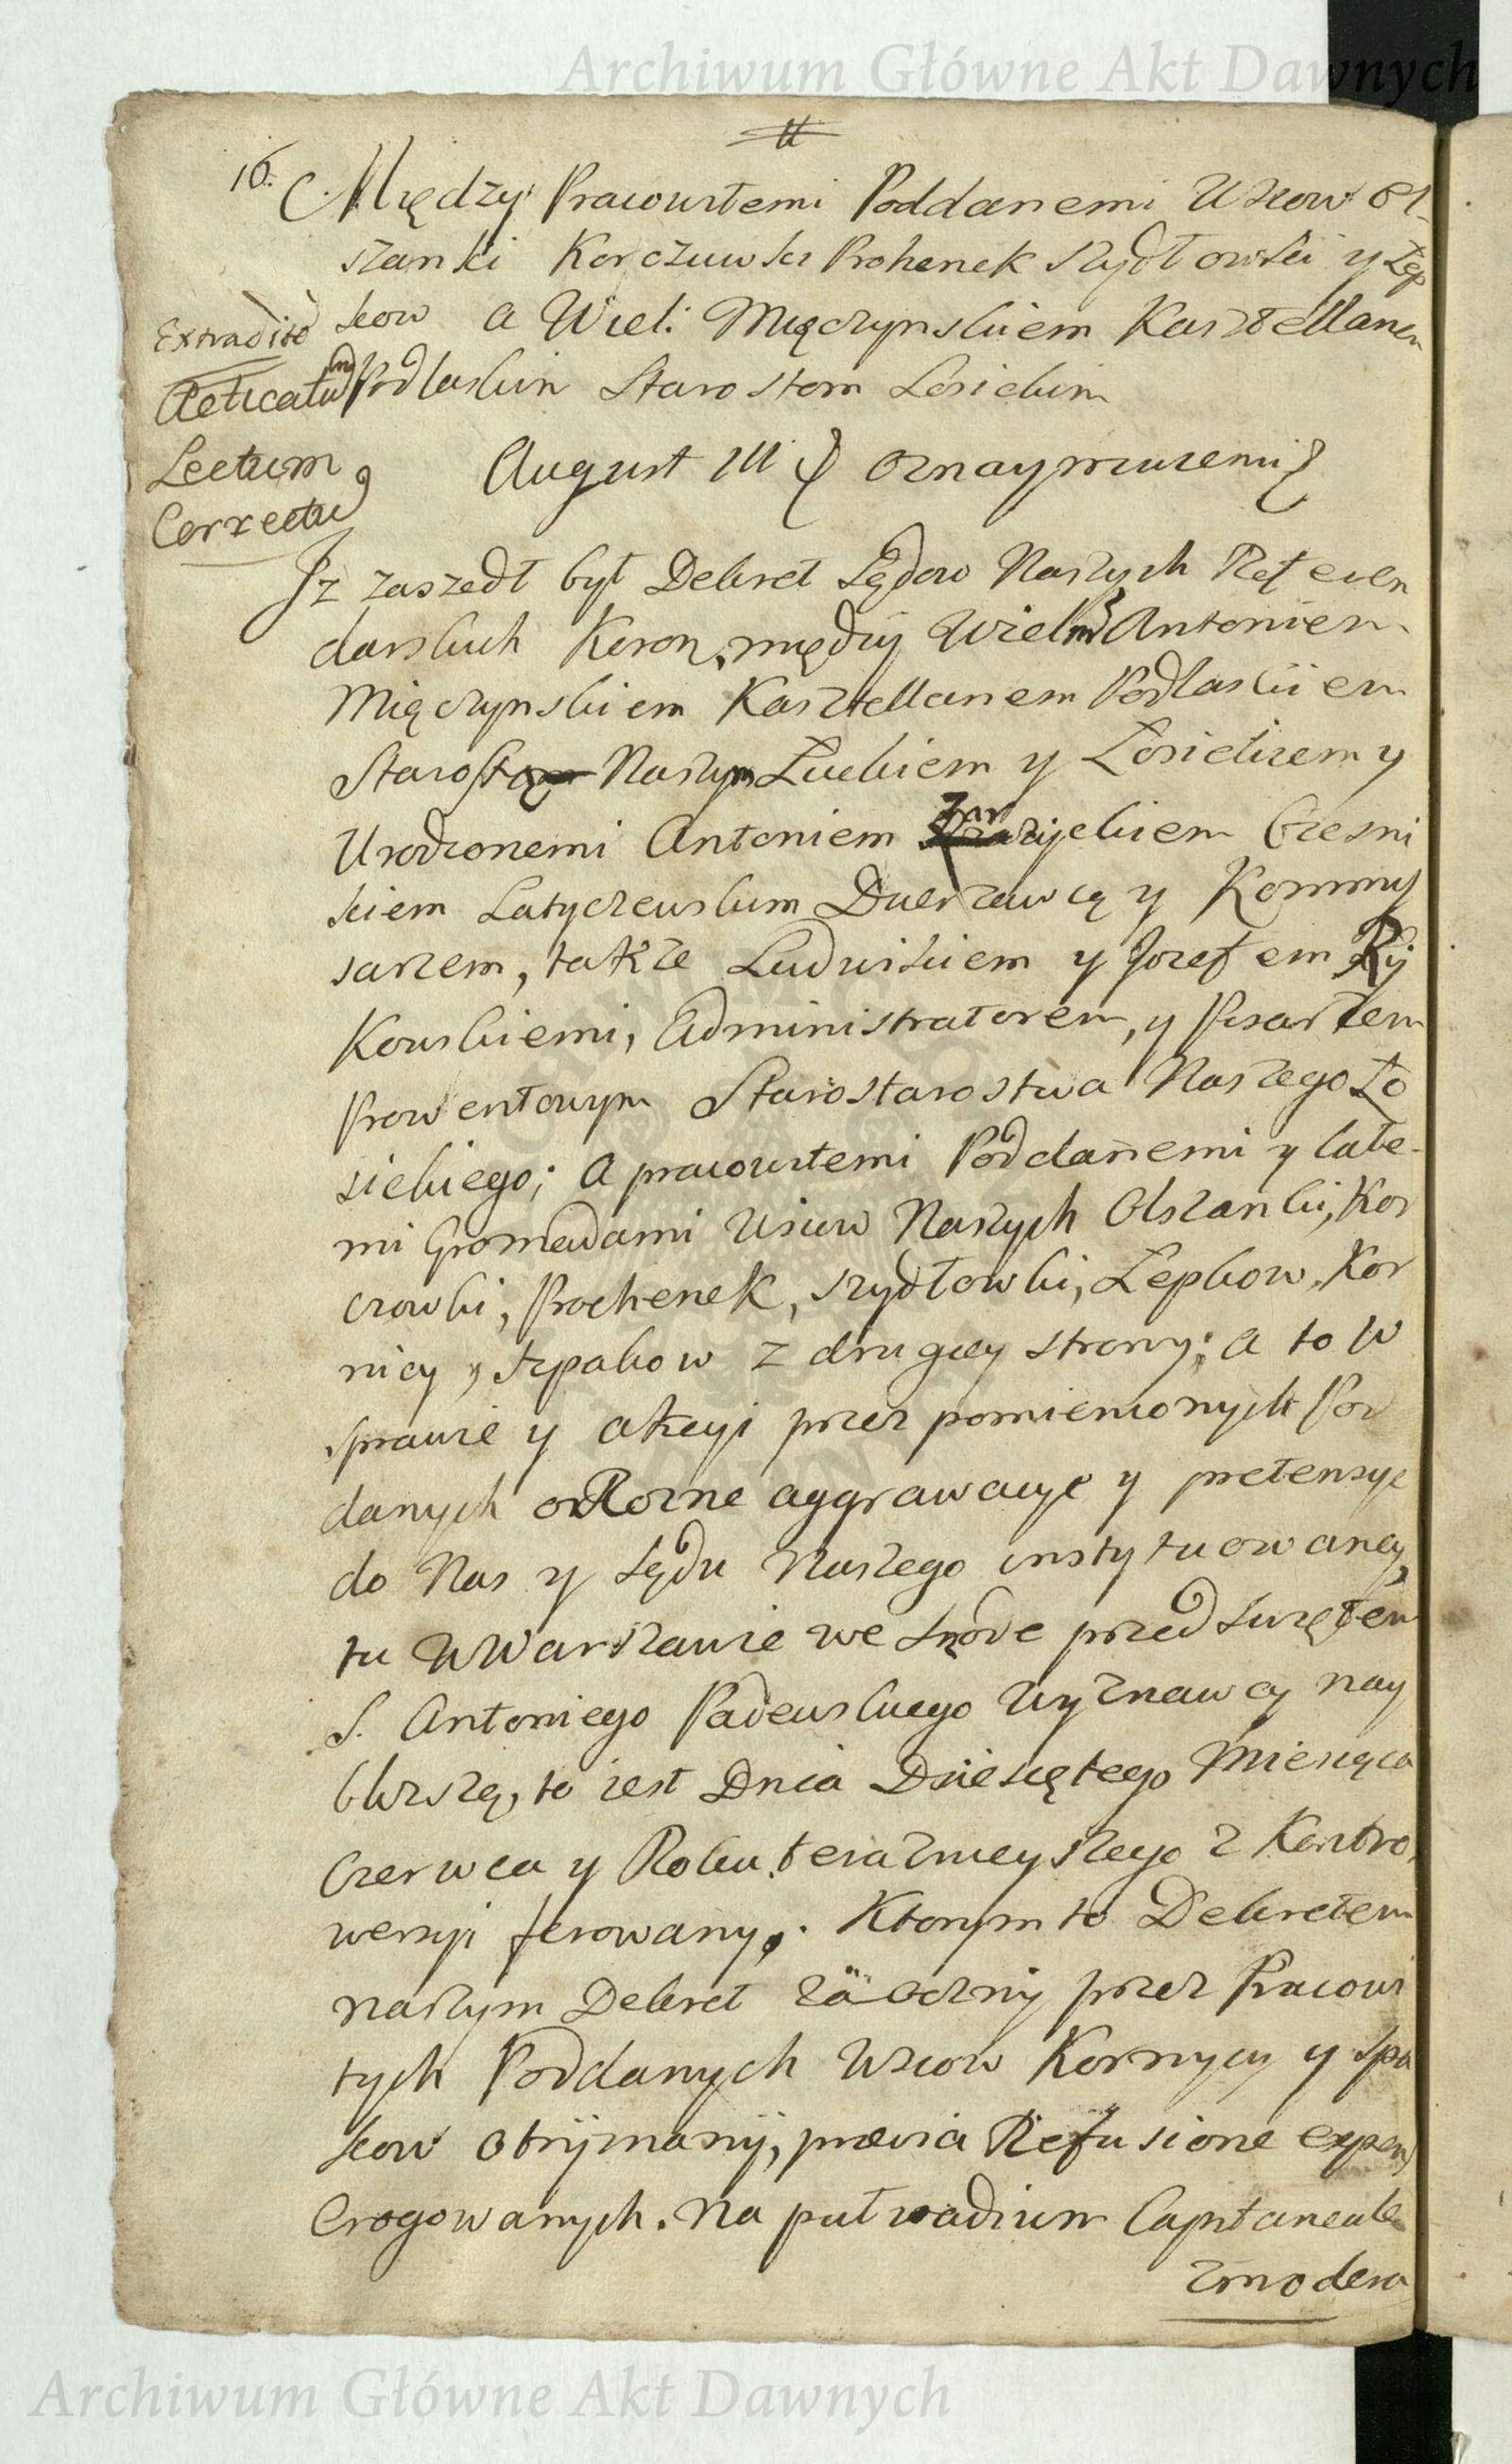 Archiwum Główne Akt Dawnych
16. Między Pracowitemi Poddanemi Wsiow Ol-
szanki Korczuwki Prohenek Szydłowki y Łep
kow a Wiel: Mięczynskiem Kasztellanem
Podlaskim Starostom Łosickim
Extradit
Reticatum
Lectum
Correctu
August III oznaymuiemi
Iz zaszedł był Dekret Sądow Naszych Referen
darskich Koron. między Wielm Antoniem
Mięczynskiem Kasztellanem Podlaskiem
Starostą Naszym Łuckiem y Łosickiem y
Urodzonemi Antoniem Czesni
kiem Latyczewskim Dzierzawcą y Kommis
sarzem, także Ludwikiem y Jozefem Ry
kowskiemi, Administratorem, y Pisarzem
Prowentowym Starostarostwa Naszego Ło
sickiego; a pracowitemi Poddanemi y całe-
mi Gromadami Wsiow Naszych Olszanki, Kor
czowki, Prochenek, Szydłowki, Łepkow, Kor
nicy y Szpakow z drugiey strony; a to w
sprawie y akcyi przez pomienionych Pod
danych o Rozne aggrawacye y pretensye
do Nas y Sądu Naszego instytuowaney,
tu w Warszawie we Srzode przed Swiętem
S. Antoniego Padewskiego Wyznawcy nay
blizszą, to iest Dnia Dziesiątego Miesiąca
Czerwca y Roku teraznieyszego z Kontro
wersyi ferowany. Ktorym to Dekretem
naszym Dekret zaoczny przez Pracowi
tych Poddanych Wsiow Kornycy y Spa
kow otrzymany, prævia Refusione expens
Erogowanych. Na puł wadium Capitaneale
zmodera
Archiwum Główne Akt Dawnych